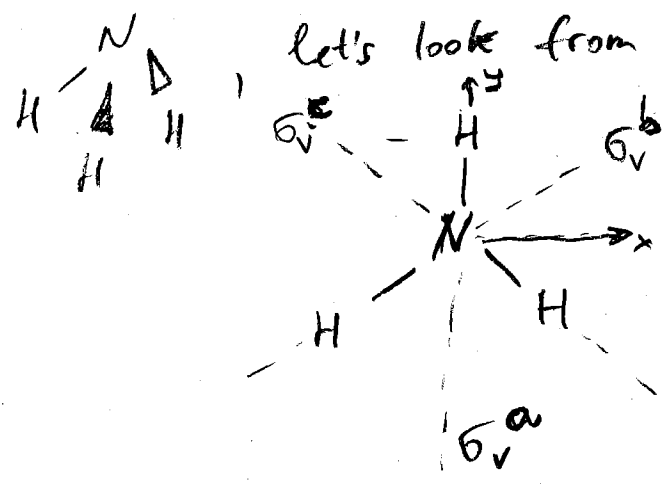 N
H H
H
, let's look from
y
σᵥᶜ H σᵥᵇ
N x
H H
σᵥᵃ